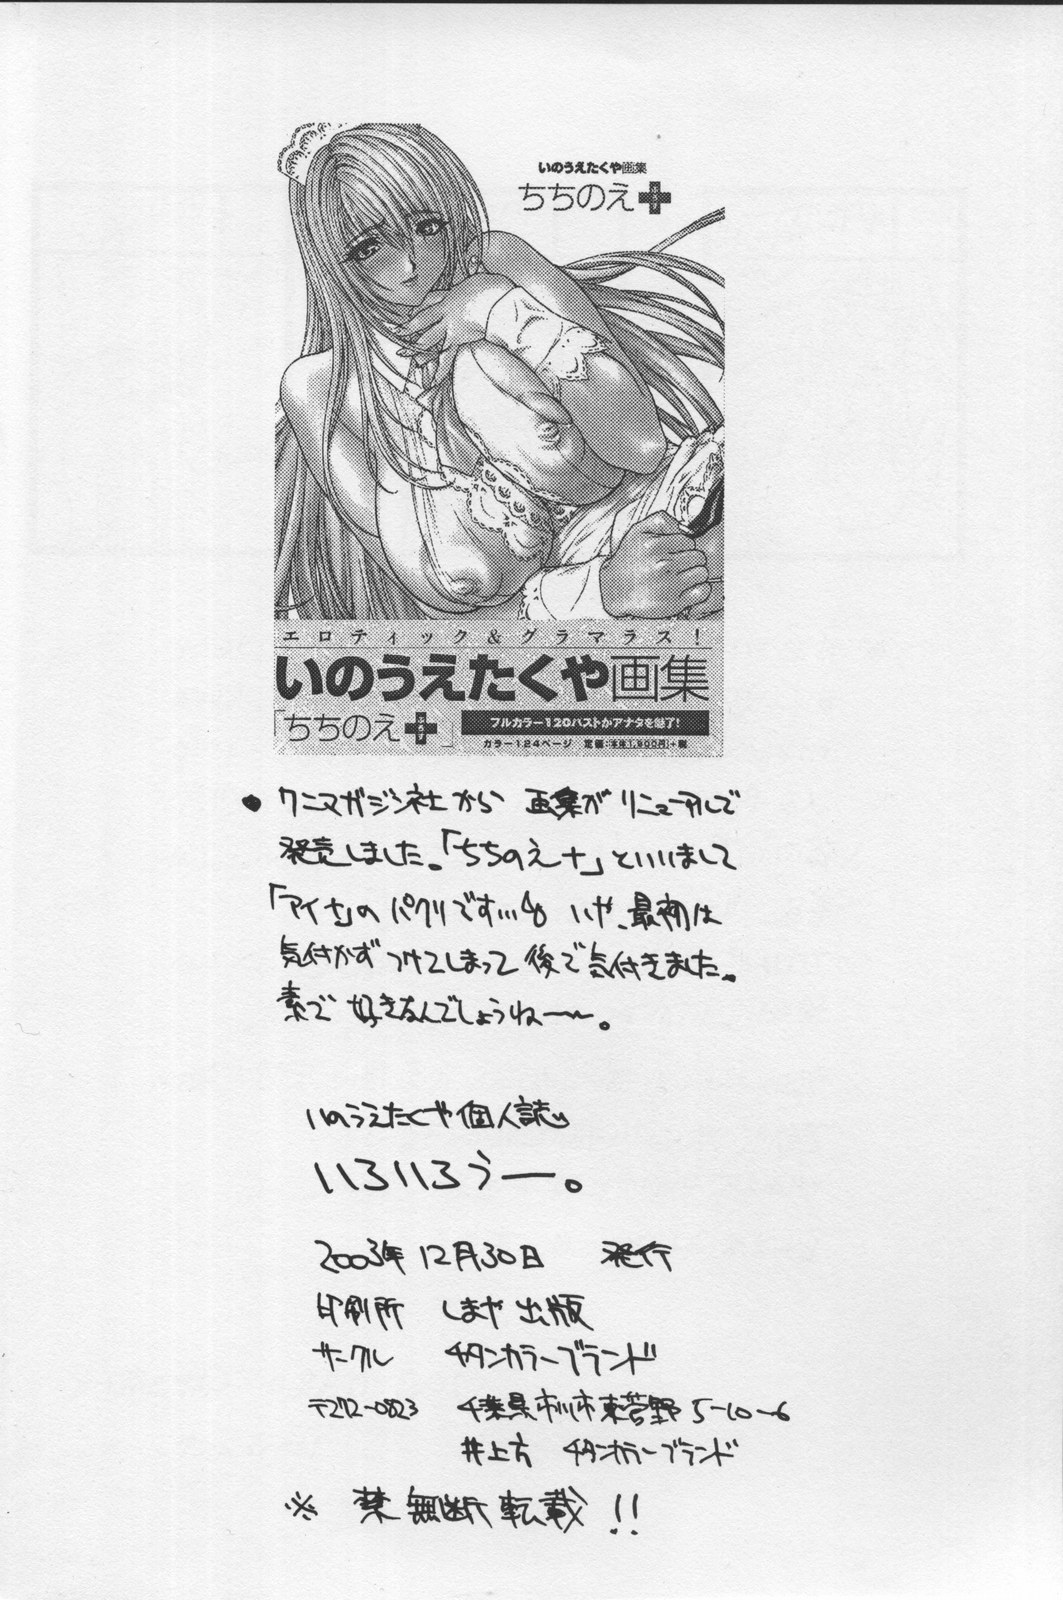 いのうえたくや画集
ちちのえ
ぷらす
エロティック&グラマラス!
いのうえたくや画集
「ちちのえ ぷらす」
フルカラー120バストがアナタを魅了!
カラー124ページ 定価:本体1,900円+税
● ワニマガジン社から 画集がリニューアルして
発売しました。「ちちのえ+」といいまして
「アイナ」の パクリです… いや、最初は
気付かず つけてしまって 後で気付きました。
素で 好きなんでしょうね〜〜。
いのうえたくや個人誌
いろいろぅー。
2003年 12月30日 発行
印刷所 しまや出版
サークル チタンカラーブランド
〒272-0823 千葉県市川市東菅野5-10-6
井上方 チタンカラーブランド
※ 禁無断転載 !!